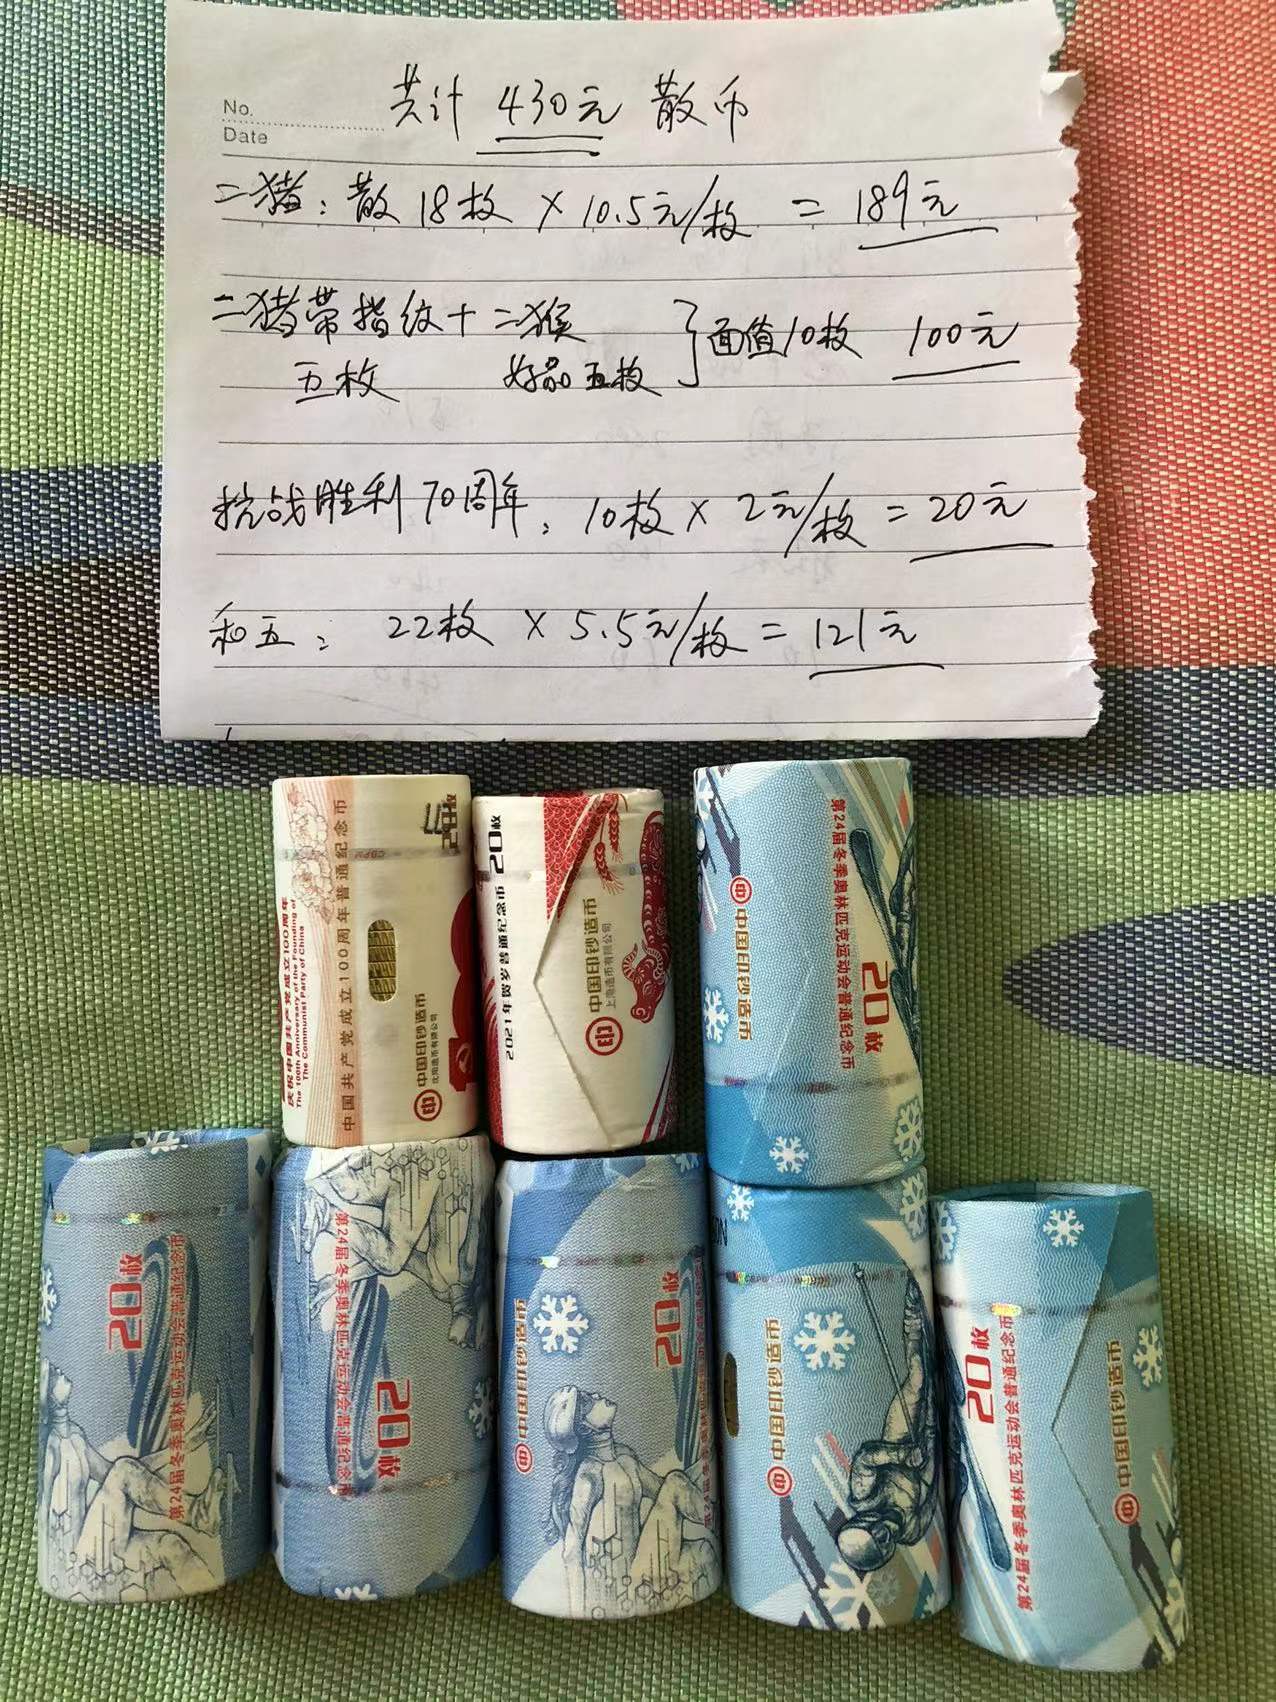 No.
Date
共计 430元 散币
二猪：散 18枚 × 10.5元/枚 = 189元
二猪带指纹 + 二猴 } 面值10枚 100元
五枚 好品五枚
抗战胜利70周年：10枚 × 2元/枚 = 20元
和五：22枚 × 5.5元/枚 = 121元
庆祝中国共产党成立100周年
The 100th Anniversary of the Founding of
The Communist Party of China
中国共产党成立100周年普通纪念币
中国印钞造币
2021年贺岁普通纪念币 20枚
中国印钞造币
上海造币有限公司
中国印钞造币
第24届冬季奥林匹克运动会普通纪念币
20枚
20枚
第24届冬季奥林匹克运动会普通纪念币
第24届冬季奥林匹克运动会普通纪念币
20枚
中国印钞造币
20枚
中国印钞造币
20枚
第24届冬季奥林匹克运动会普通纪念币
中国印钞造币